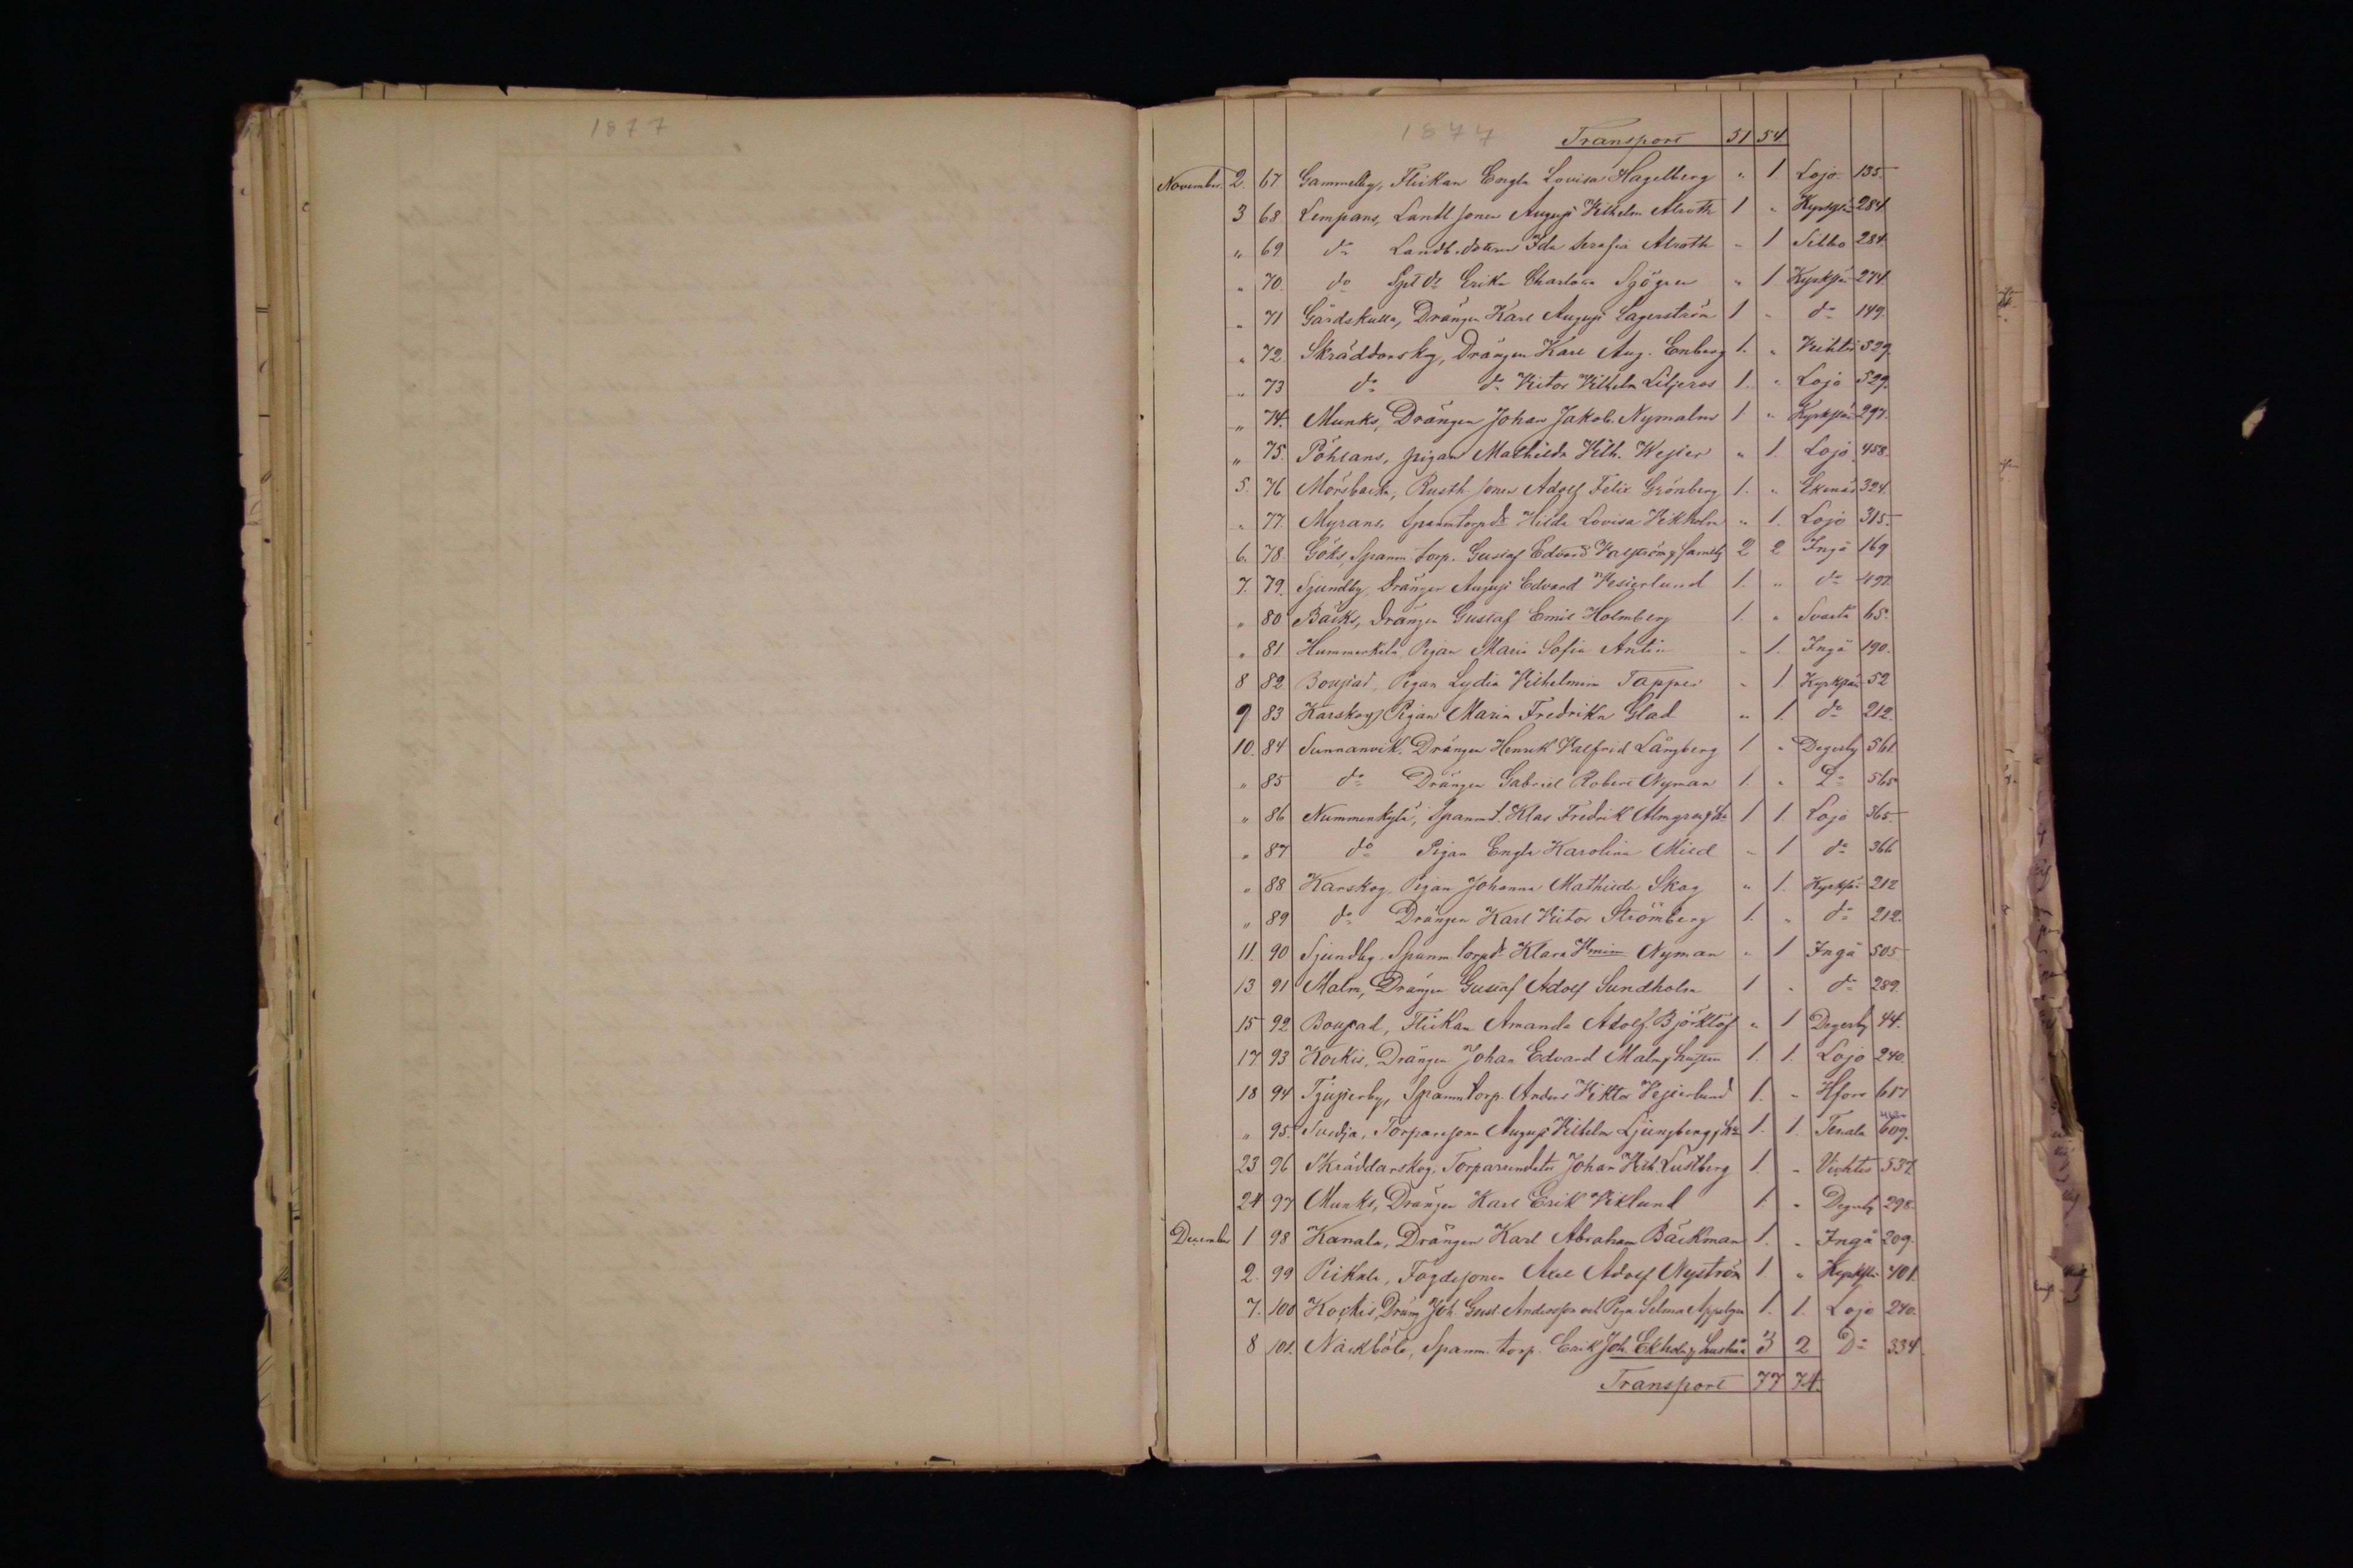 1877
1877
Transport 51 54
November 2. 67. Gammelby, Flickan Engla Lovisa Hagelberg " 1 Lojo 135.
3 68 Lempans, Landb sonen August Vilhelm Alroth 1 " Kyrksl 284
" 69 do Landb. dottren Ida Serafia Alroth " 1 Sibbo 284.
" 70. do Spt dr Erika Charlotta Sjögren " 1 Kyrksl 274.
" 71 Gårdskulla, Drängen Karl August Lagerström 1 " do 149.
" 72. Skräddarskog, Drängen Karl Aug. Enberg 1. " Vichtis 529.
" 73 do do Victor Vilhelm Liljeros 1. " Lojo 529.
" 74. Munks, Drängen Johan Jakob Nymalm 1 " Kyrkslä 297.
" 75. Påhlans, pigan Mathilda Vilh. Wester " 1. Lojo 458.
5. 76 Mörsbacka, Rusth. sonen Adolf Felix Grönberg 1. " Ekenäs 324.
" 77. Myrans Spanm torp dr Hilda Lovisa Vikholm " 1. Lojo 315.
6. 78. Göks, Spanm. torp. Gustaf Edvard Valström, familj 2 2 Ingå 169
7. 79. Sjundby, Drängen August Edvard Vesterlund 1. " do 497.
" 80 Bäcks, Drängen Gustaf Emil Holmberg 1. " Svarta 65.
" 81 Hummerkila Pigan Maria Sofia Antin " 1. Ingå 190.
8 82. Boustad, Pigan Lydia Vilhelmina Tapper " 1 Kyrkslä 52
9 83 Karskog, Pigan Maria Fredrika Glad " 1. do 212.
10. 84 Sunnanvik. Drängen Henrik Valfrid Långberg 1 " Degerby 561.
" 85 do Drängen Gabriel Robert Nyman 1. " Do 565
" 86 Nummenkylä, Spanm t. Klas Fredrik Almgren, hu 1 1. Lojo 365.
" 87 do Pigan Engla Karolina Mild " 1 do 366
" 88 Karskog, Pigan Johanna Mathilda Skog " 1. Kyrkslä 212
" 89 do Drängen Karl Victor Strömberg 1. " do 212.
11. 90 Sjundby. Spanm. torp dr Klara Vmina Nyman " 1 Ingå 505
13 91 Malm, Drängen Gustaf Adolf Sundholm 1 " do 289.
15 92 Boustad, Flickan Amanda Adolf. Björklöf " 1 Degerby 44.
17 93 Kockis, Drängen Johan Edvard Malm, hustru 1. 1. Lojo 240.
18 94 Tjusterby, Spanm torp. Anders Viktor Vesterlund 1. " Hfors 617
" 95. Svedja, Torparesonen August Vilhelm Ljungberg, hu 1. 1. Tenala 609.
23 96 Skräddarskog. Torpare Johan Vilh. Lustberg 1. " Vichtis 537
24 97 Munks, Drängen Karl Erik Viklund 1. " Degerby 298.
December 1 98 Kanala, Drängen Karl Abraham Bäckman 1. " Ingå 209.
2. 99 Pickala, Fogdesonen Axel Adolf Nyström 1. " Kyrkslä 401.
7. 100 Kockis, Dräng Joh. Gust Andersson och Pigan Selma Appelgren 1. 1. Lojo 240.
8 101. Näckböle, Spanm. torp. Erik Joh. Ekholm, hustru 3 2 Do 334.
Transport 77 74.